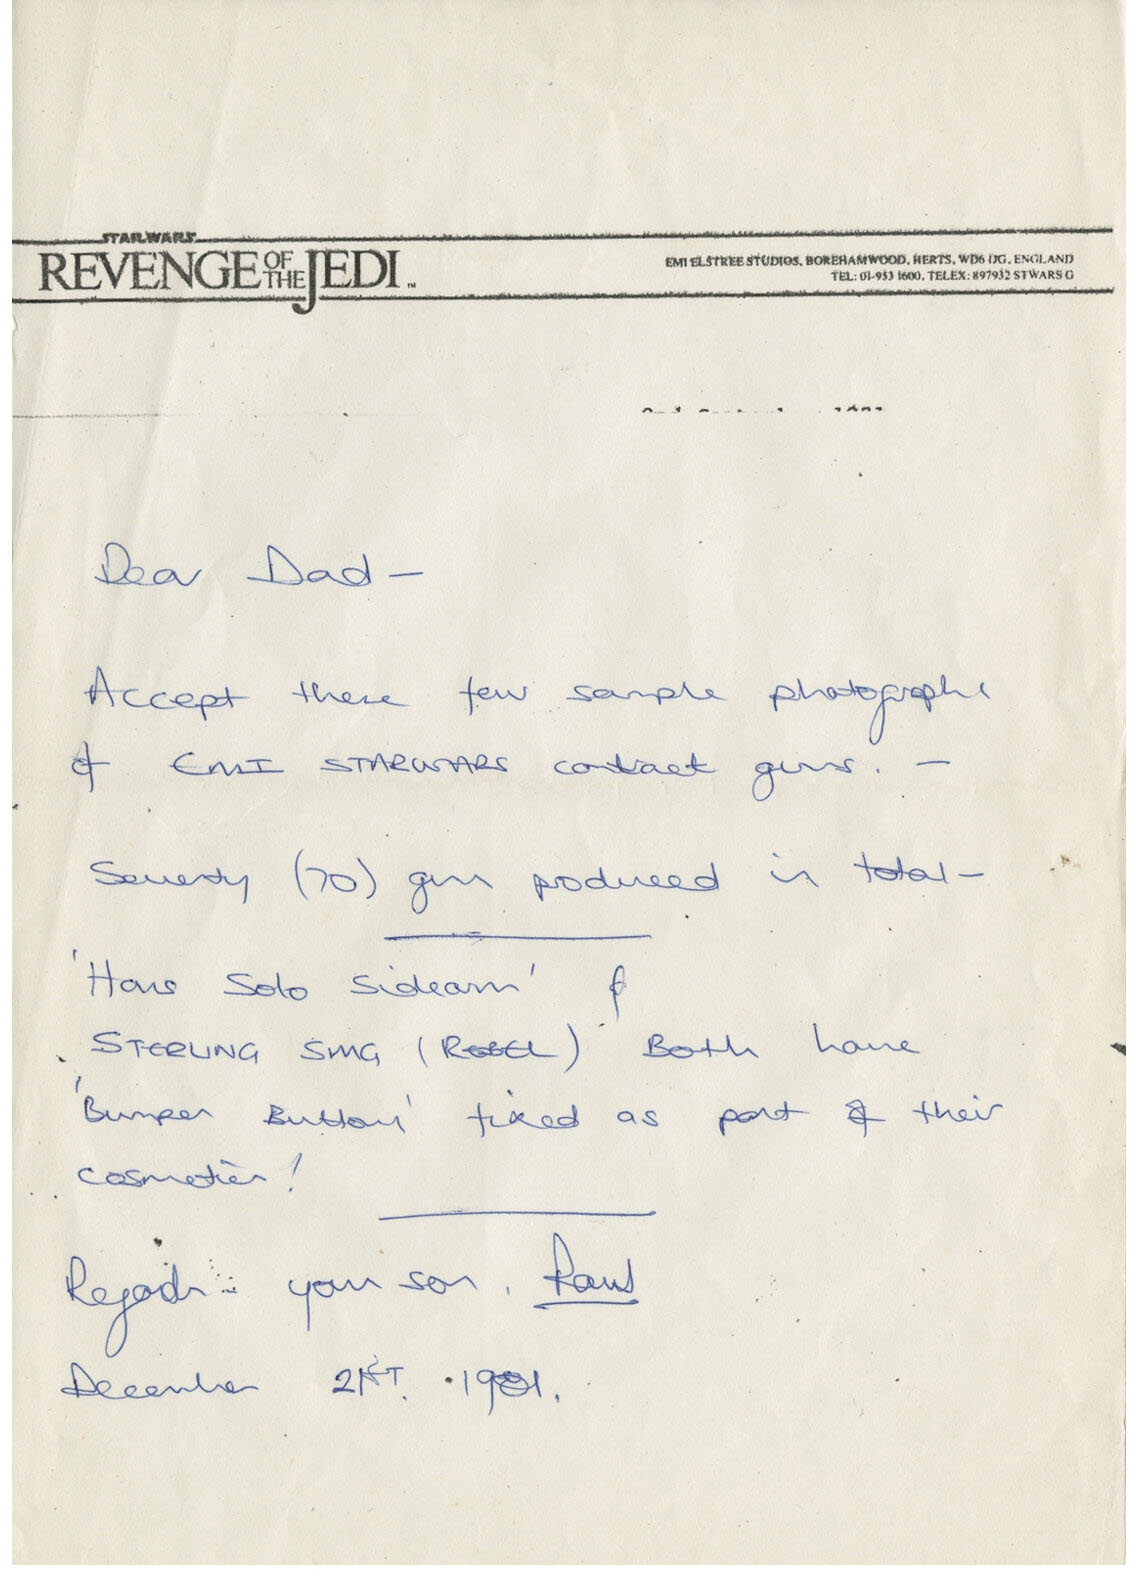 STAR WARS
REVENGE OF THE JEDI ™
EMI ELSTREE STUDIOS, BOREHAMWOOD, HERTS, WD6 1JG, ENGLAND
TEL: 01-953 1600, TELEX: 897932 STWARS G
Dear Dad —
Accept these few sample photographs
of EMI STARWARS contract guns. —
Seventy (70) guns produced in total —
'Hans Solo Sidearm' &
STERLING SMG (REBEL) Both have
'Bumper Button' fixed as part of their
cosmetics!
Regards your son. Paul
December 21ST. 1981.